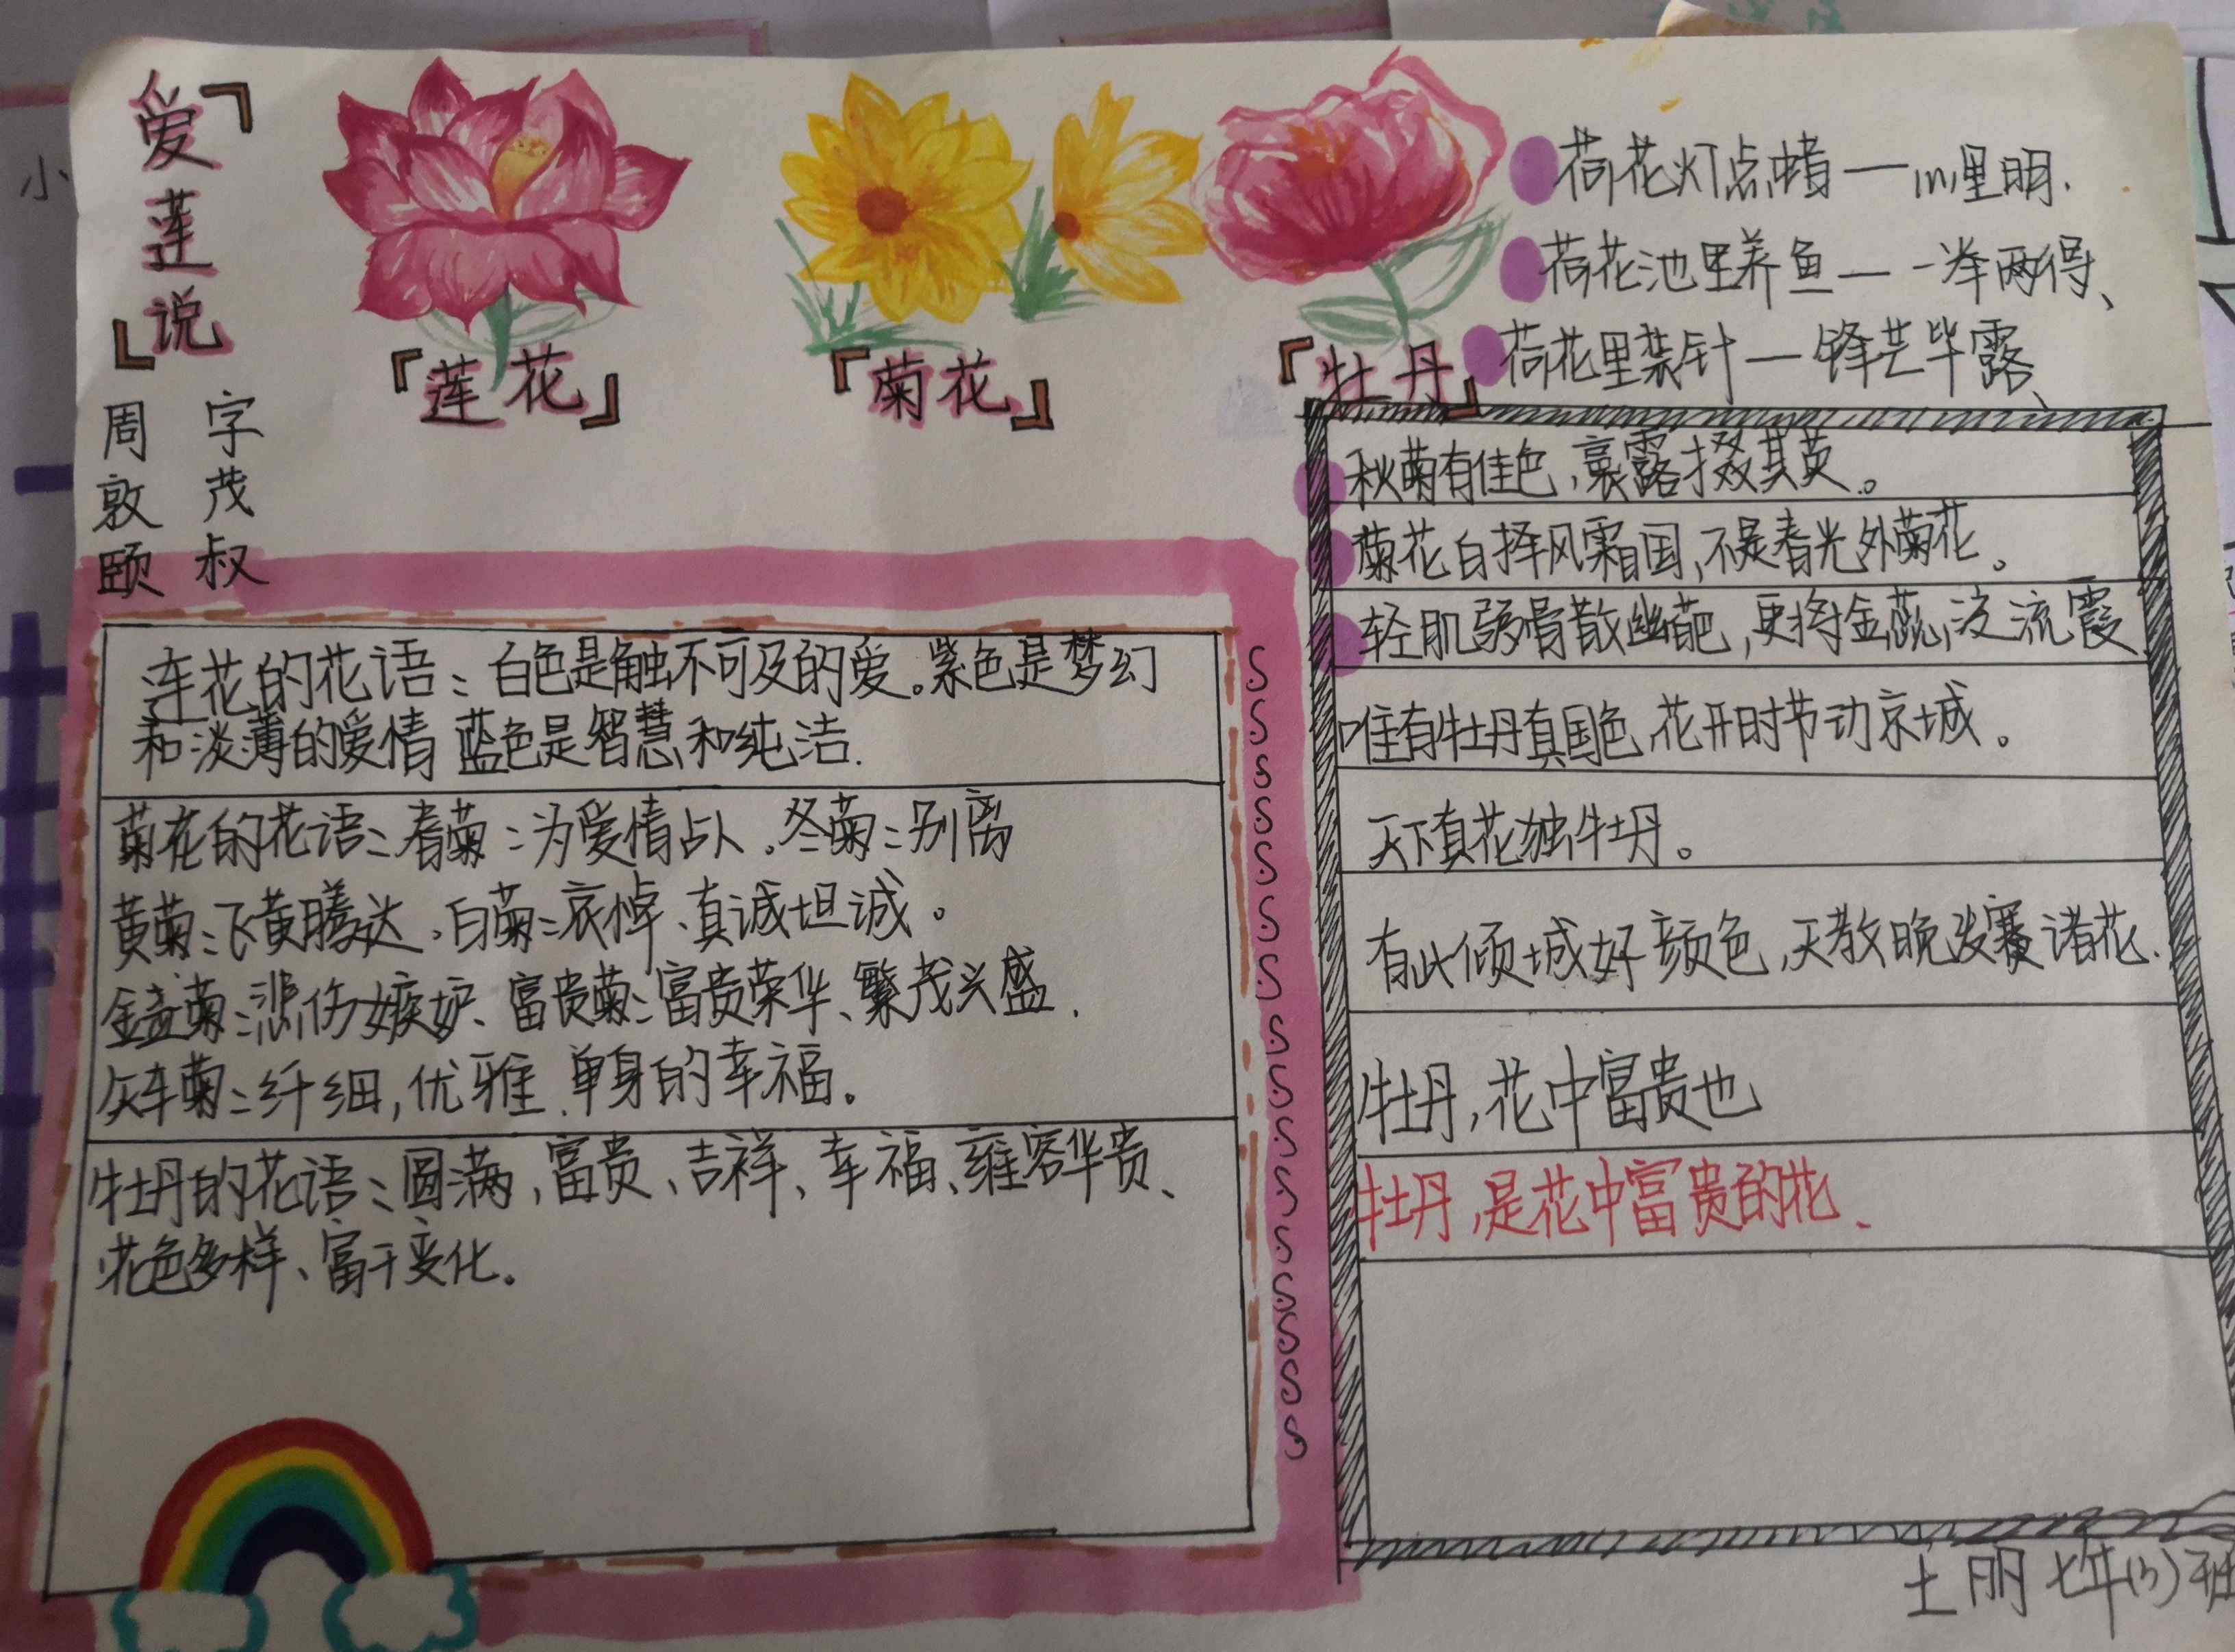 『爱莲说』
周敦颐
字茂叔
『莲花』
『菊花』
『牡丹』
荷花灯点蜡—心里明.
荷花池里养鱼—一举两得、
荷花里藏针—锋芒毕露、
莲花的花语：白色是触不可及的爱。紫色是梦幻
和淡薄的爱情 蓝色是智慧和纯洁.
菊花的花语：春菊：为爱情占卜。冬菊：别离
黄菊：飞黄腾达。白菊：哀悼、真诚坦诚。
金盏菊：悲伤嫉妒、富贵菊：富贵荣华、繁茂兴盛.
矢车菊：纤细,优雅、单身的幸福。
牡丹的花语：圆满、富贵、吉祥、幸福、雍容华贵、
花色多样、富于变化。
秋菊有佳色,裛露掇其英。
菊花自择风霜国,不是春光外菊花。
轻肌弱骨散幽葩,更将金蕊泛流霞
唯有牡丹真国色,花开时节动京城。
天下真花独牡丹。
有此倾城好颜色,天教晚发赛诸花.
牡丹,花中富贵也
牡丹,是花中富贵的花、
七年(3)班
小